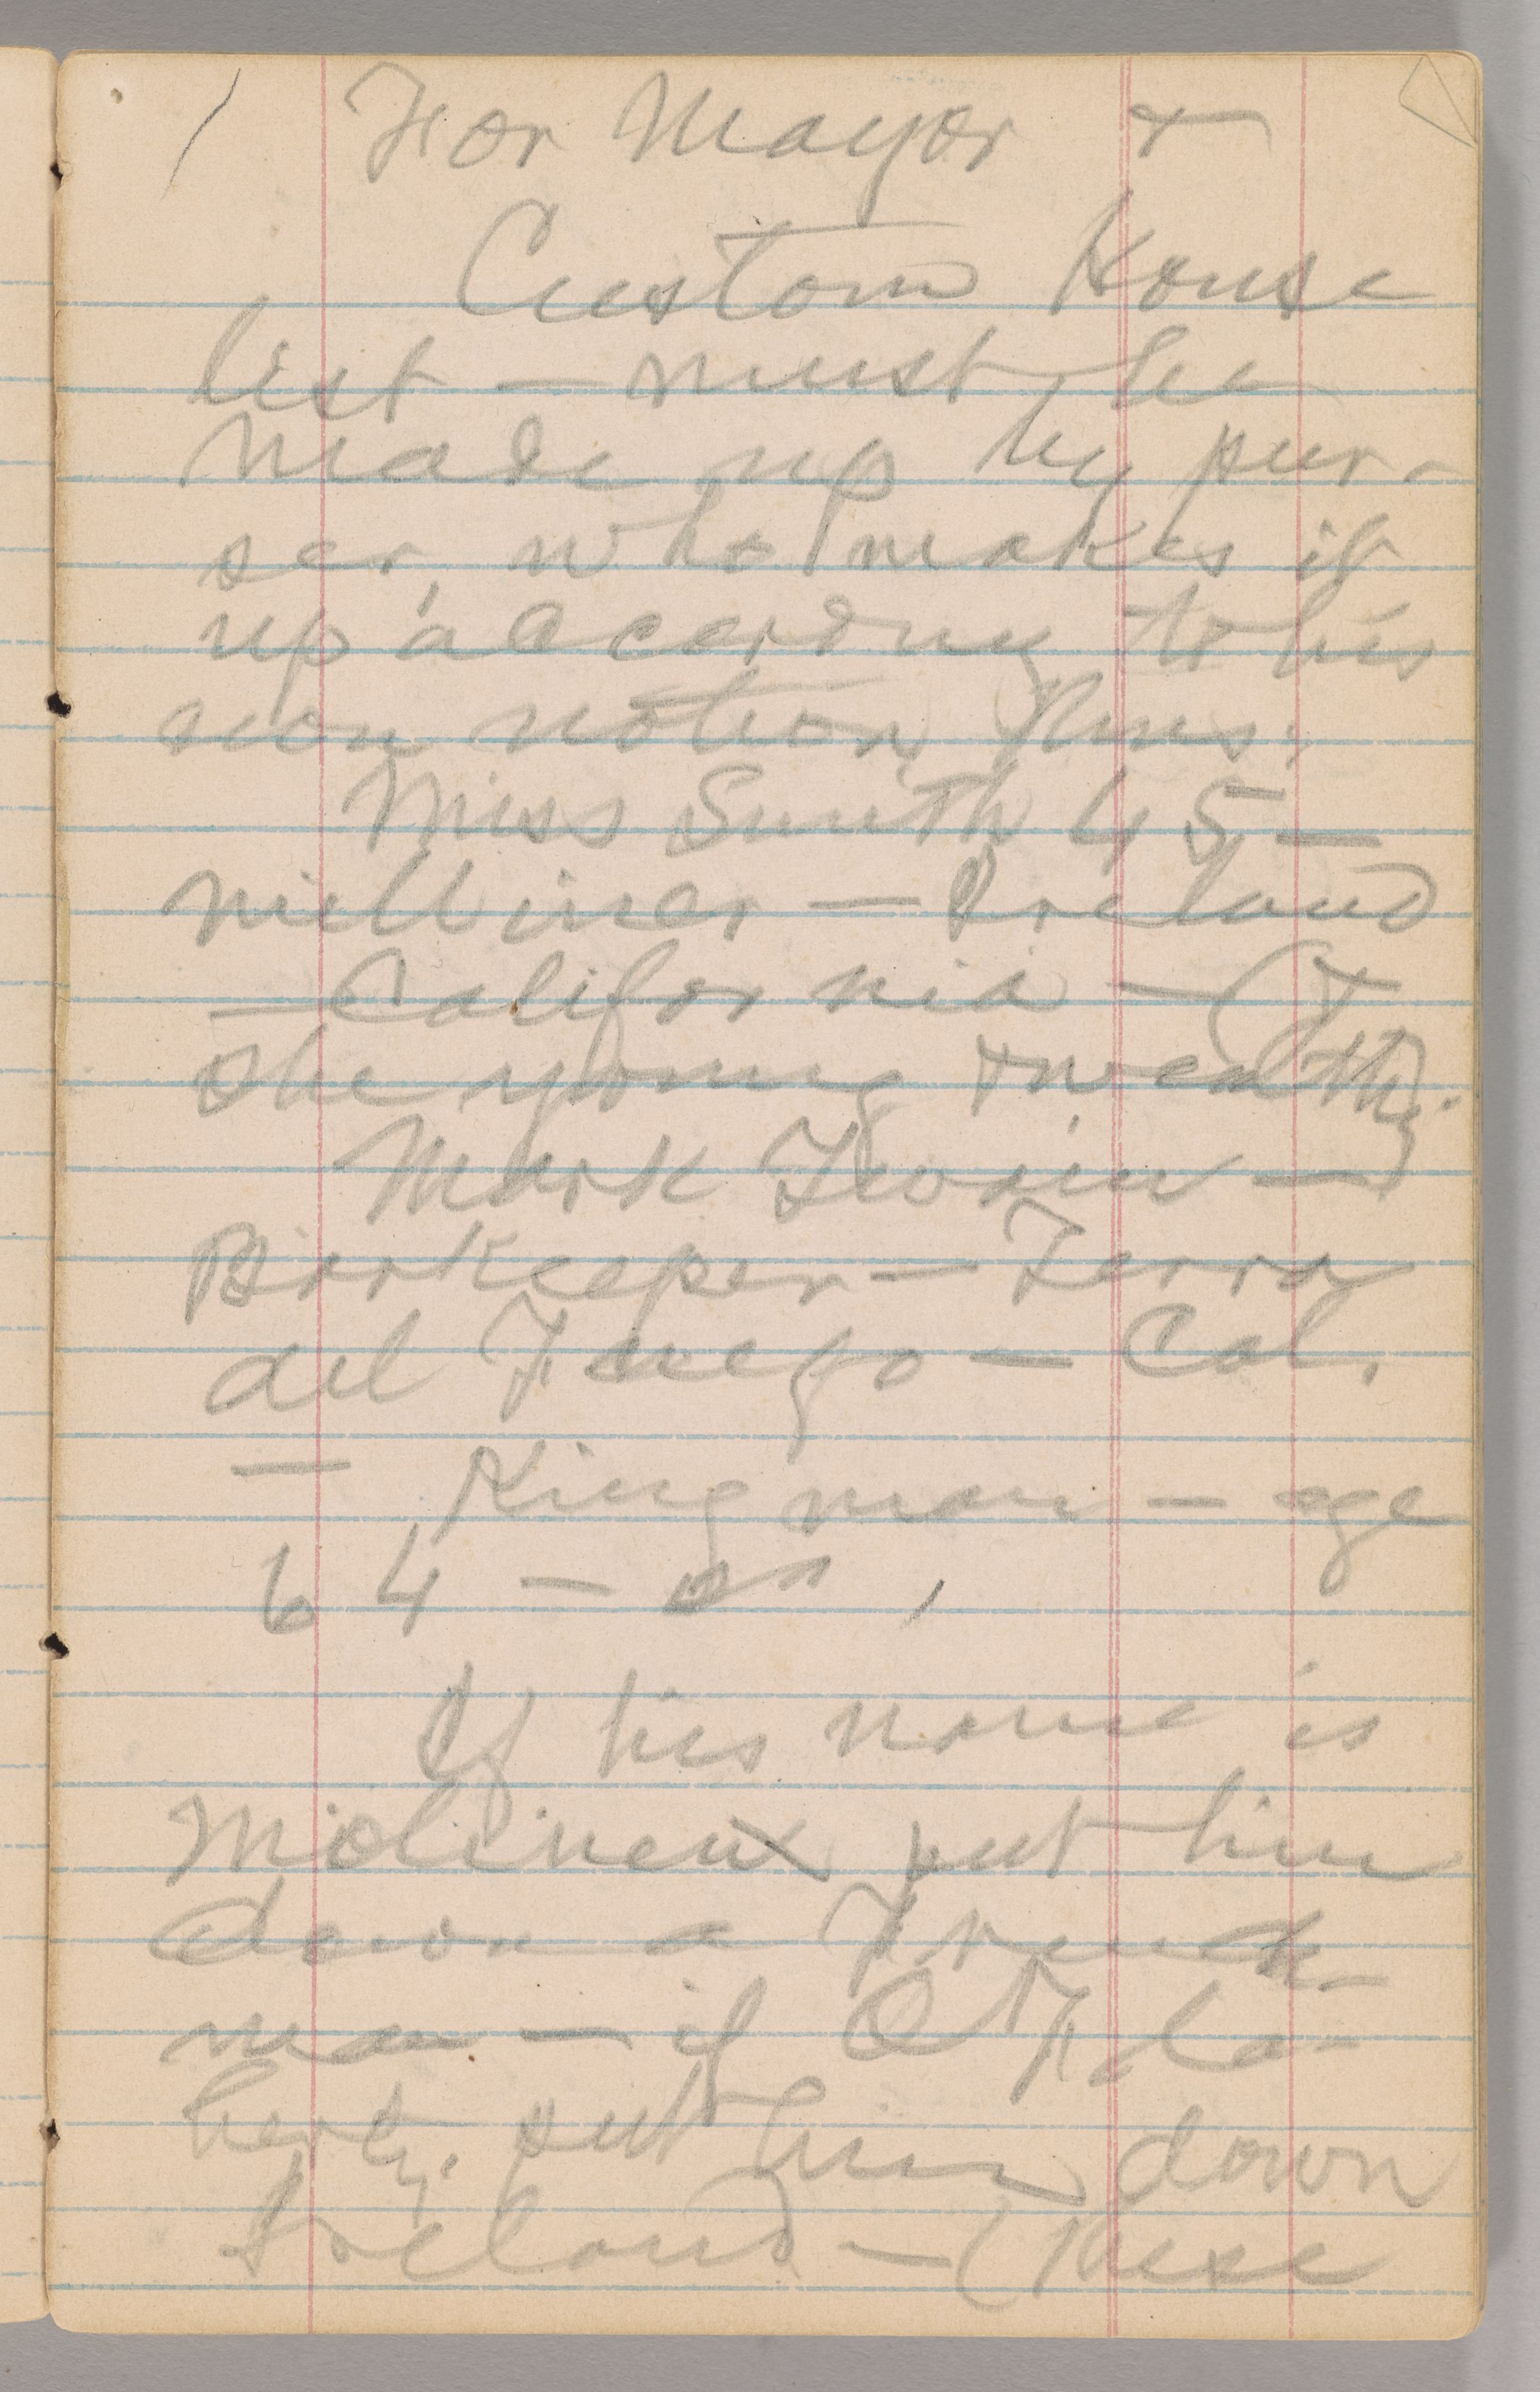 For Mayor &
Custom House
list — must be
made up by pur-
ser, who makes it
up according to his
own notion thus:
Miss Smith 45 —
milliner — Ireland
— California — (&
she young & wealthy.)
Mark Twain —
Barkeeper — Terra
del Fuego — Cal.
— Kingman — age
64 —
If his name is
Molineux put him
down a French-
man — if O'Fla-
herty, put him down
Ireland — (These